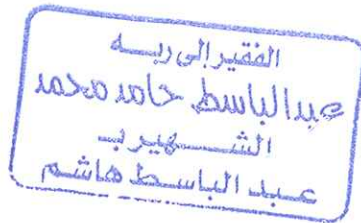 الفقير إلى ربه
عبد الباسط حامد محمد
الشهير ب
عبد الباسط هاشم